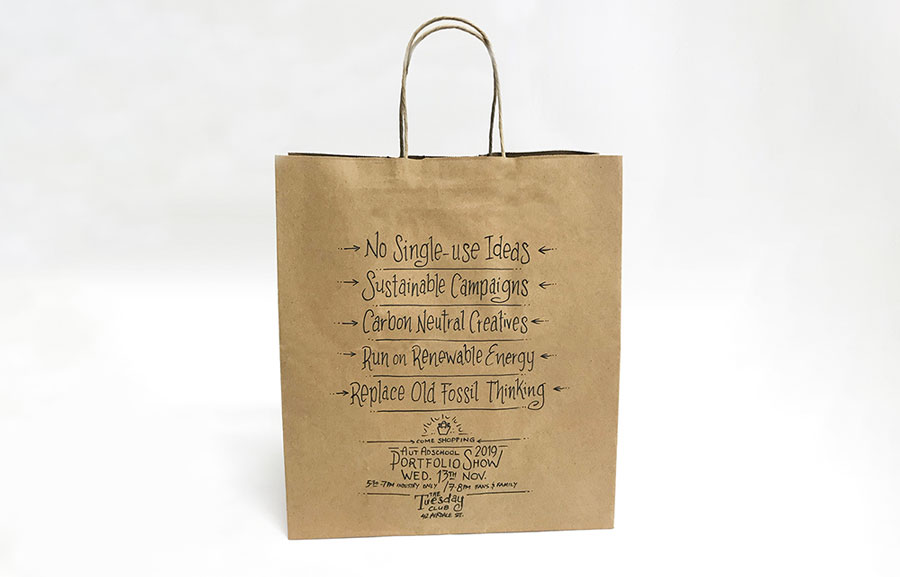 No Single-use Ideas
Sustainable Campaigns
Carbon Neutral Creatives
Run on Renewable Energy
Replace Old Fossil Thinking
COME SHOPPING
AUT ADSCHOOL 2019
PORTFOLIO SHOW
WED. 13TH NOV.
7PM INDUSTRY ONLY / 7-8PM FANS & FAMILY
THE
Tuesday
CLUB
42 ST.